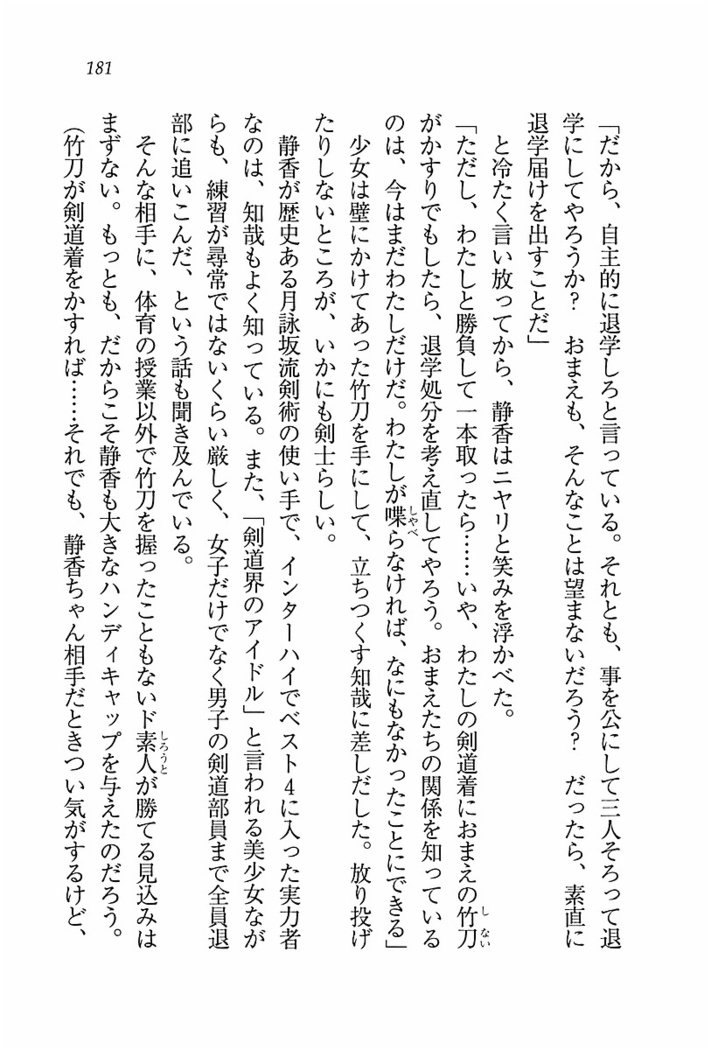 181
「だから、自主的に退学しろと言っている。それとも、事を公にして三人そろって退
学にしてやろうか？　おまえも、そんなことは望まないだろう？　だったら、素直に
退学届けを出すことだ」
と冷たく言い放ってから、静香はニヤリと笑みを浮かべた。
「ただし、わたしと勝負して一本取ったら……いや、わたしの剣道着におまえの竹刀
がかすりでもしたら、退学処分を考え直してやろう。おまえたちの関係を知っている
のは、今はまだわたしだけだ。わたしが喋らなければ、なにもなかったことにできる」
少女は壁にかけてあった竹刀を手にして、立ちつくす知哉に差しだした。放り投げ
たりしないところが、いかにも剣士らしい。
静香が歴史ある月詠坂流剣術の使い手で、インターハイでベスト４に入った実力者
なのは、知哉もよく知っている。また、「剣道界のアイドル」と言われる美少女なが
らも、練習が尋常ではないくらい厳しく、女子だけでなく男子の剣道部員まで全員退
部に追いこんだ、という話も聞き及んでいる。
そんな相手に、体育の授業以外で竹刀を握ったこともないド素人が勝てる見込みは
まずない。もっとも、だからこそ静香も大きなハンディキャップを与えたのだろう。
（竹刀が剣道着をかすれば……それでも、静香ちゃん相手だときつい気がするけど、